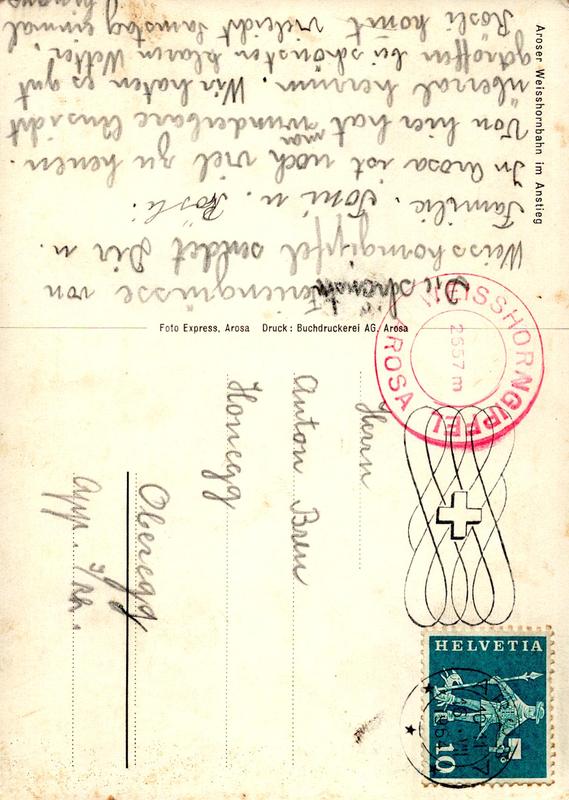 Aroser Weisshornbahn im Anstieg
Die schönsten Feriengrüsse von
Weisshorngipfel sendet Dir u.
Familie. Toni u. Rösli.
In Arosa ist noch viel zu
Von hier hat man wunderbare Aussicht
überal herrum. Wir haten es gut
getroffen bei schönsten klaren Wetter.
Rösli kommt vieleicht Samstag einmal
Foto Express, Arosa Druck: Buchdruckerei AG, Arosa
WEISSHORNGIPFEL
2657 m
AROSA
HELVETIA
10
Herrn
Anton Breu
Honegg
Oberegg
App. I/Rh.